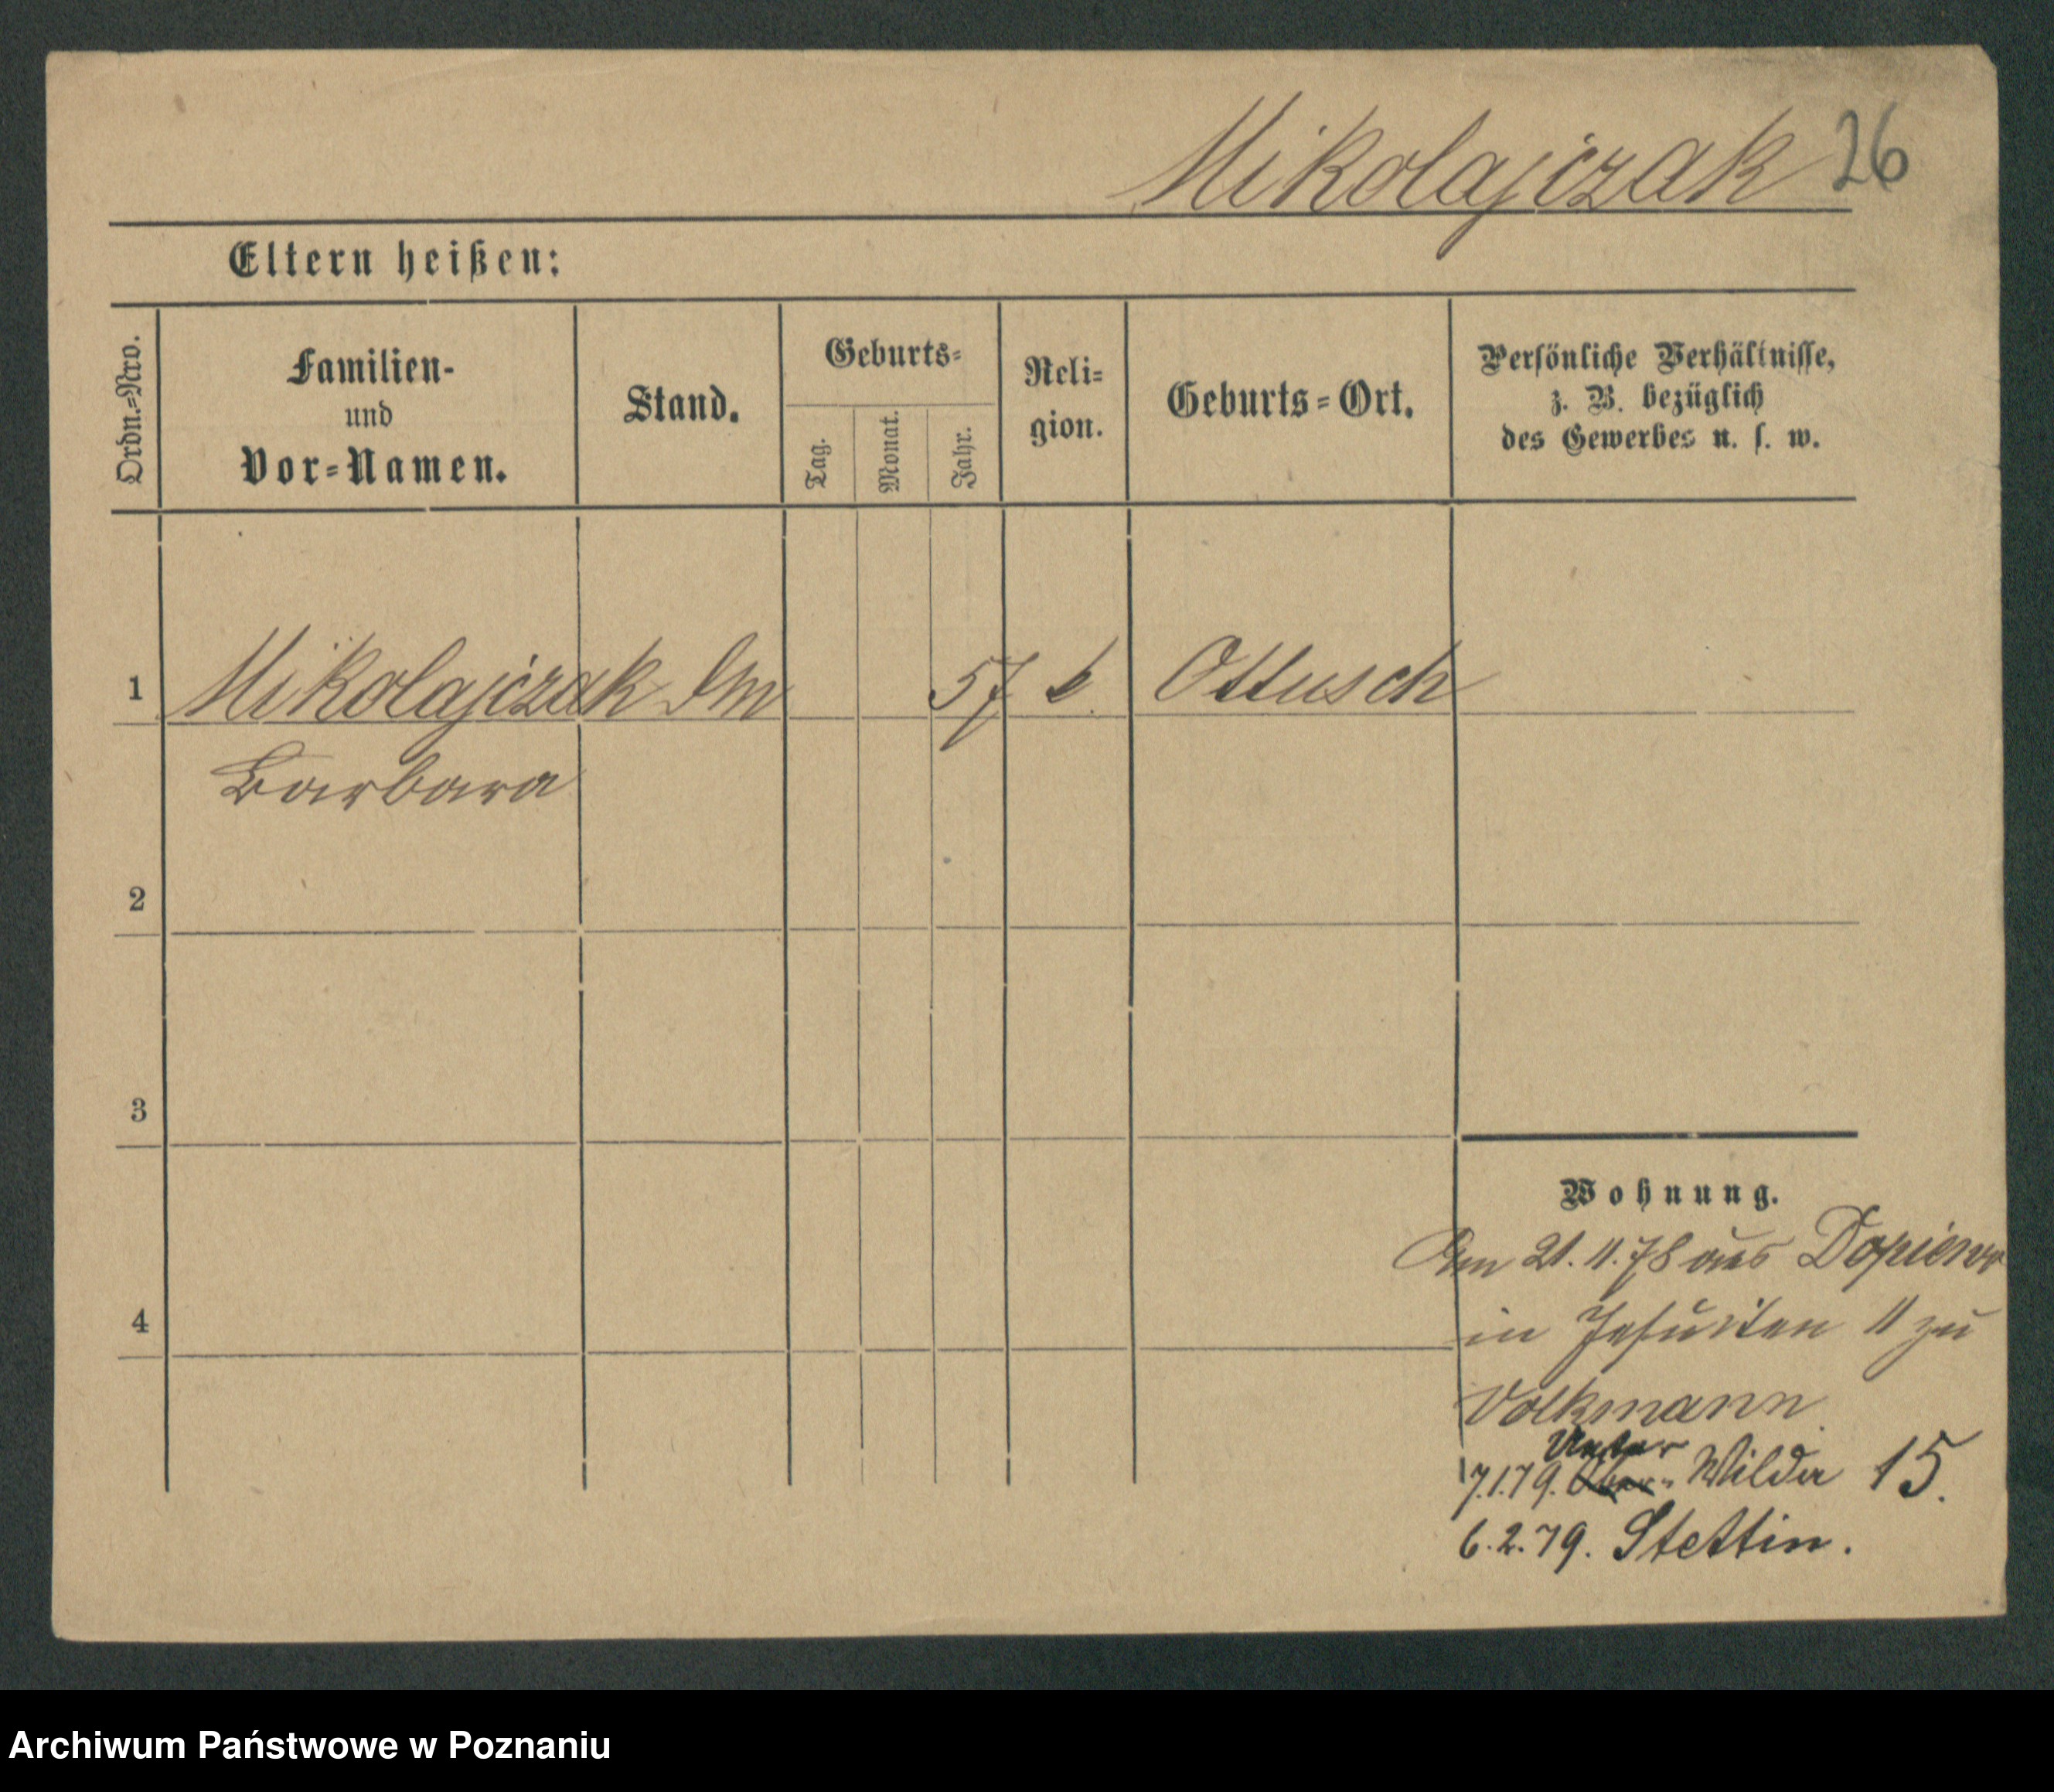 Mikolajczak 26
Eltern heißen:
Ordn.=Nro.
Familien-
und
Vor=Namen.
Stand.
Geburts=
Tag.
Monat.
Jahr.
Reli=
gion.
Geburts=Ort.
Persönliche Verhältnisse,
z. B. bezüglich
des Gewerbes u. s. w.
1 Mikolajczak 57 k. Ottusch
Barbara
2
3
4
Wohnung.
Am 21.11.78 aus Dopiewo
in Jesuiten 11 zu
Volkmann
Unter
17.1.79. Ober- Wilda 15.
6.2.79. Stettin.
Archiwum Państwowe w Poznaniu